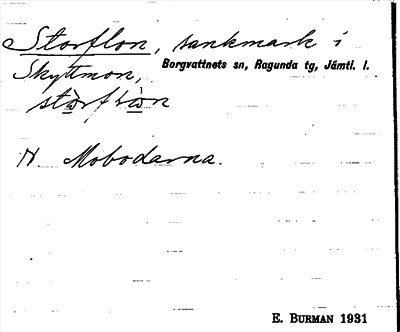 Storflon, sankmark i
Skyttmon, Borgvattnets sn, Ragunda tg, Jämtl. l.
N. Mobodarna.
E. BURMAN 1931